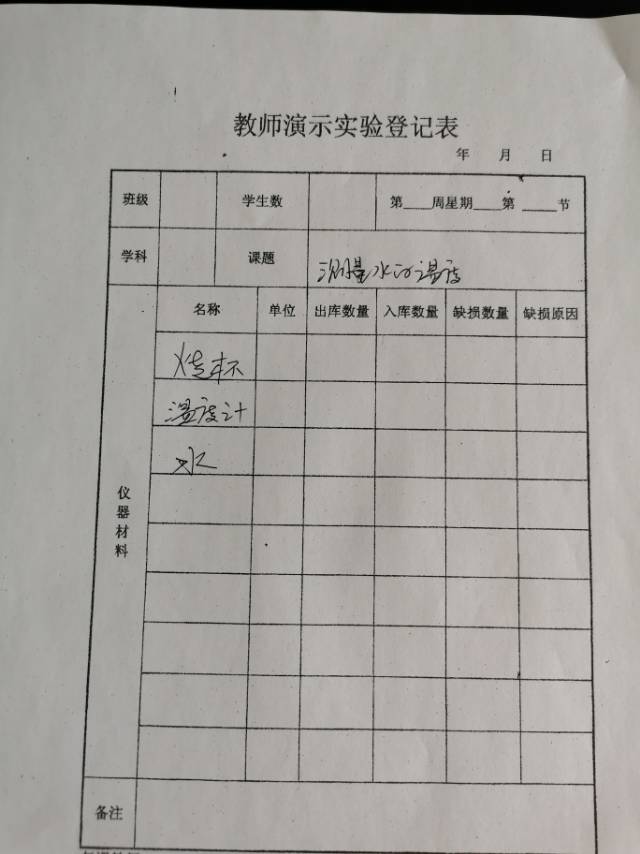 教师演示实验登记表
年 月 日
班级 学生数 第____周星期____第____节
学科 课题 测量水的温度
名称 单位 出库数量 入库数量 缺损数量 缺损原因
烧杯
温度计
水
仪器材料
备注